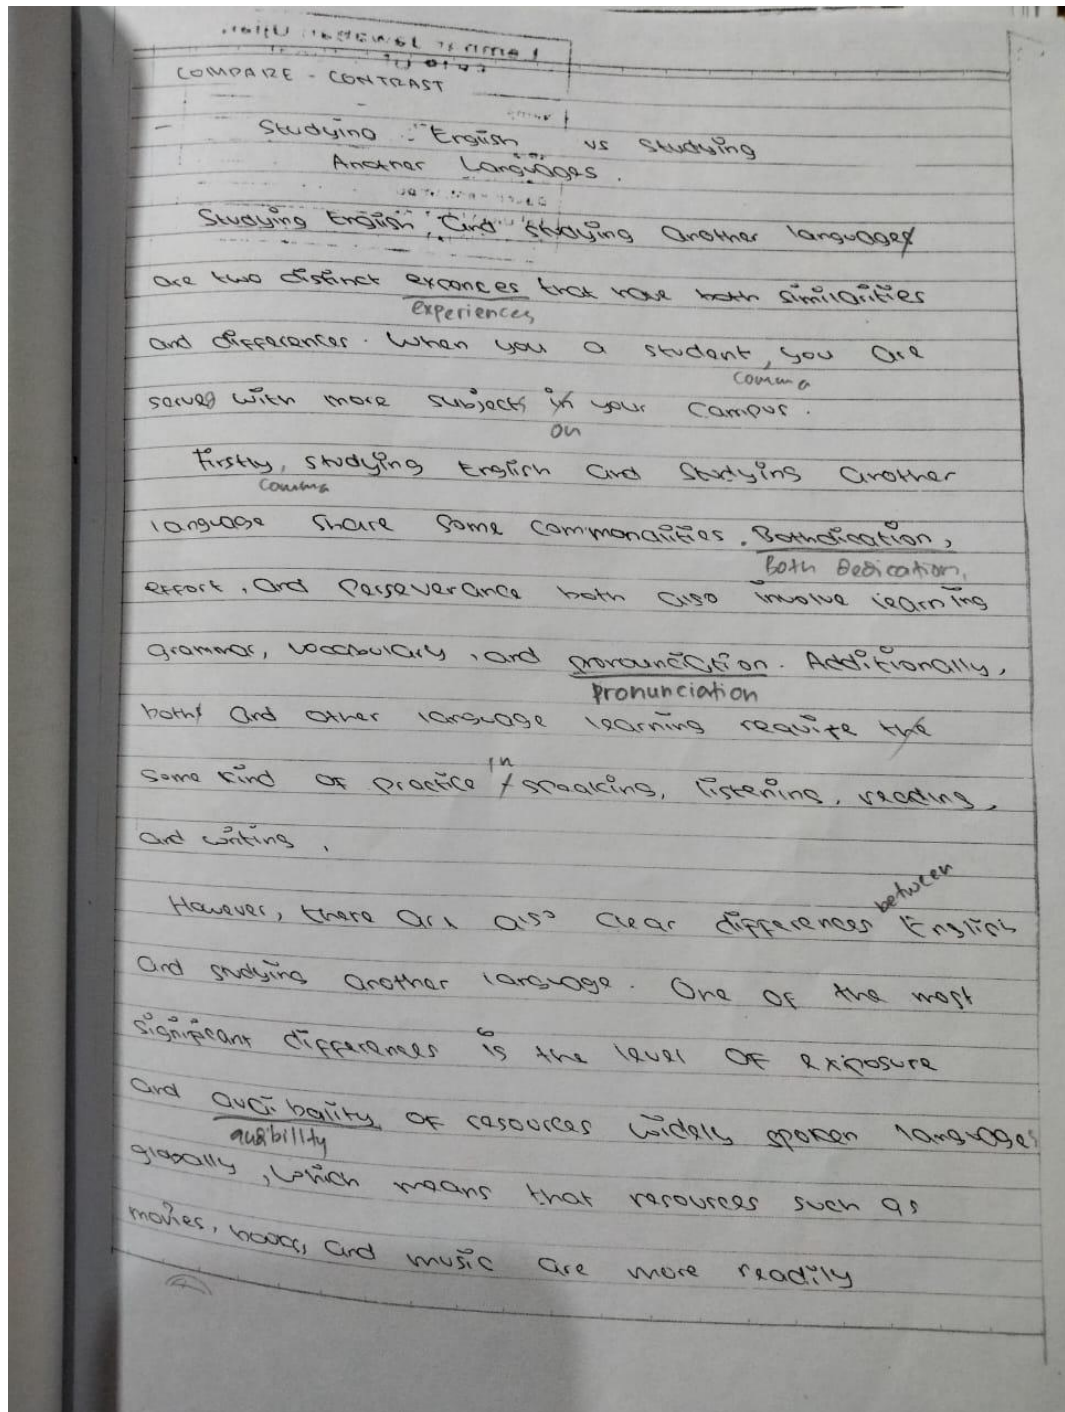 COMPARE - CONTRAST
Studying English vs Studying
Another Languages.
Studying English, and studying another languages
are two distinct expances that have both similarities
experiences
and differences. When you a student, you are
comma
served with more subjects in your campus.
on
Firstly, studying English and studying another
comma
language share some commonalities. Bothdication,
Both Dedication,
effort, and perseverance both also involve learning
grammar, vocabulary, and pronounciation. Additionally,
pronunciation
both and other language learning require the
in
same kind of practice speaking, listening, reading,
and writing.
between
However, there are also clear differences English
and studying another language. One of the most
significant differences is the level of exposure
and avai bality of resources widely spoken languages
audibility
globally, which means that resources such as
movies, books, and music are more readily